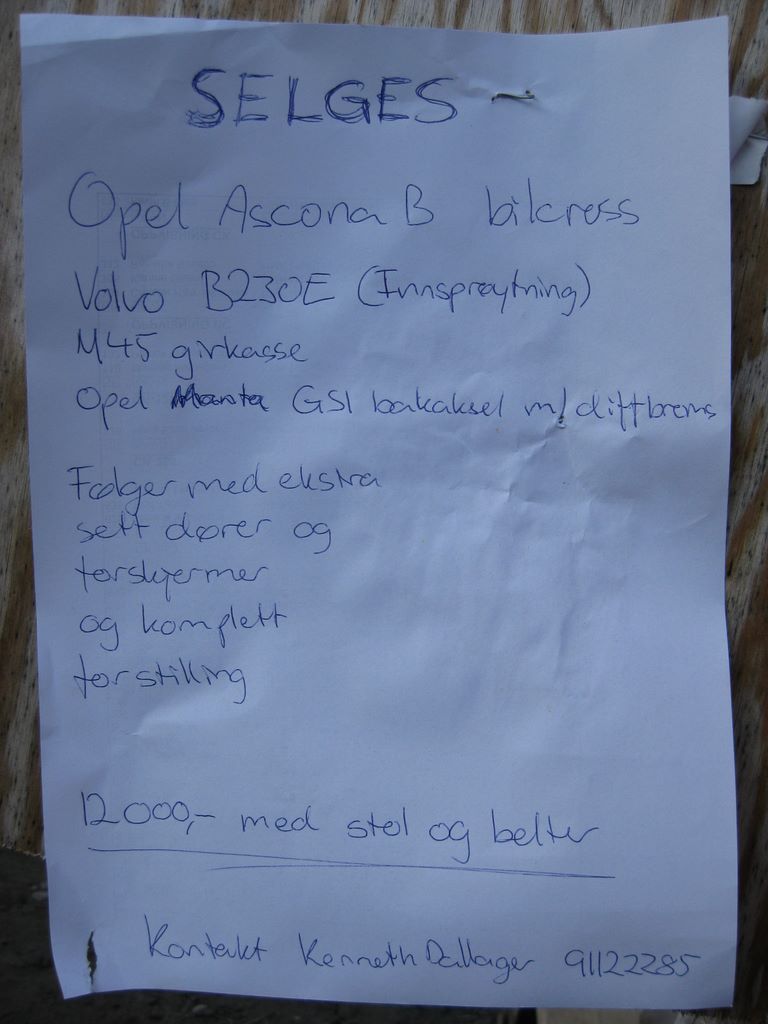 SELGES
Opel Ascona B bilcross
Volvo B230E (Innsprøytning)
M45 girkasse
Opel Manta GSI bakaksel m/ diffbrems
Følger med ekstra
sett dører og
forskjermer
og komplett
forstilling
12000,- med stol og belter
Kontakt Kenneth Dallager 91122285